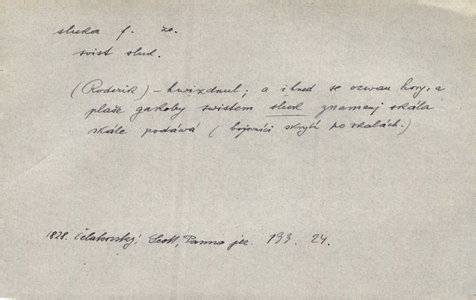 sluka f. zo.
svist sluk.
(Roderik) – hwizdnul; a ihned se ozwau hory, a
plaše gakoby swistem sluk znamenj skála
skále podáwá (bojovníci skrytí po skalách.)
1828. Čelakovský Scott, Panna jez. 193. 24.